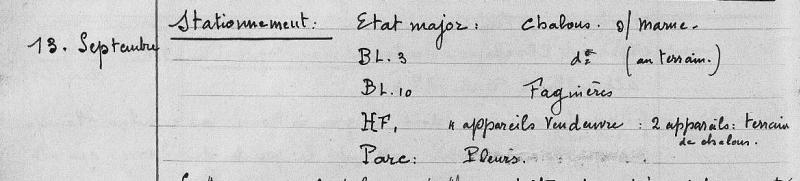 13. Septembre
Stationnement: Etat major: Chalons. s/ Marne.
BL. 3 d° (au terrain.)
BL. 10 Fagnières
HF, 4 appareils Vendeuvre : 2 appareils: terrain
de chalons.
Parc: Pleurs.